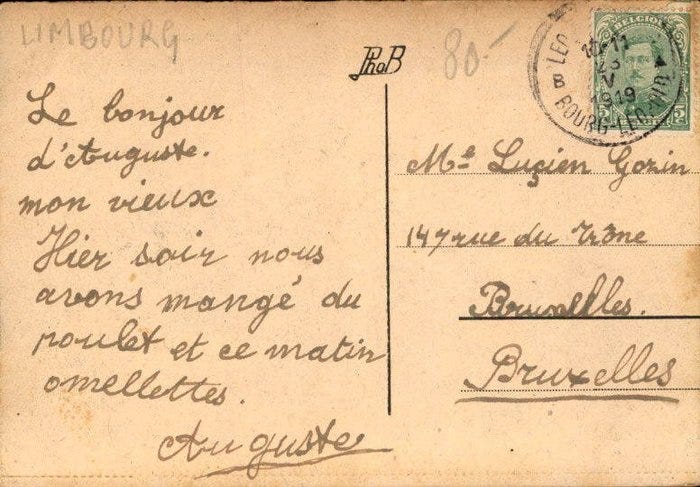 LIMBOURG
PhoB
80.-
BELGIQUE
10-11
23
V
1919
B
BOURG-LEO
5
Le bonjour
d'Auguste.
mon vieux
Hier soir nous
avons mangé du
poulet et ce matin
omellettes.
Auguste
Mr Luçien Gozin
147 rue du Trône
Bruxelles.
Bruxelles